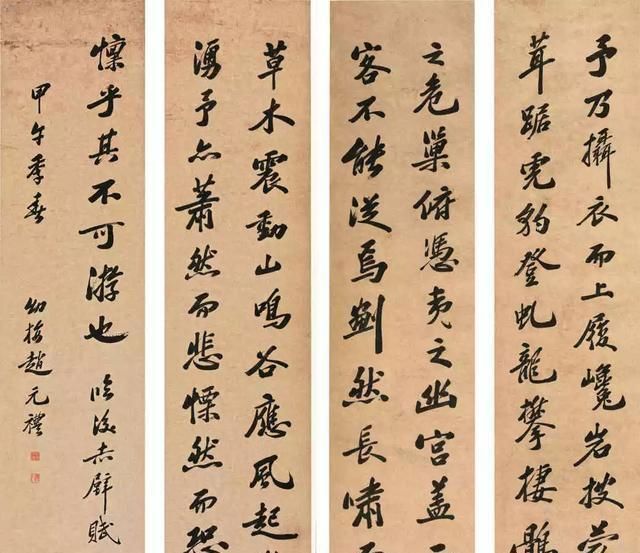 予乃攝衣而上履巉岩披蒙
茸踞虎豹登虬龍攀棲鶻
之危巢俯憑夷之幽宮盖
客不能從焉劃然長嘯
草木震動山鳴谷應風起
湧予亦蕭然而悲慄然而恐
懍乎其不可游也 臨後赤壁賦
甲午季春 幼梅趙元禮